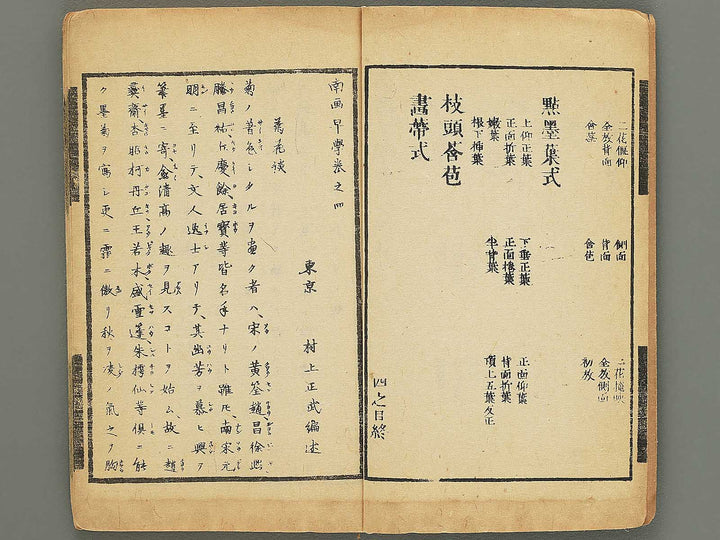 二花俯仰 側面 二花掩映
全放背面 背面 全放側面
含蕊 含苞 初放
點墨葉式
上仰正葉 下垂正葉 正面仰葉
正面折葉 正面捲葉 背面折葉
嫩葉 頂上五葉反正
根下挿葉
枝頭荅苞
畫蔕式
四之目終
南画早學巻之四
東京 村上正武編述
菊花談
菊ノ昔色シタルヲ画ク者ヘ、宋ノ黄筌趙昌徐熙
滕昌祐丘慶餘居寶等皆名手ナリト雖ヒ南宋元
明ニ至リテ、文人逸士アリテ、其幽芳ヲ慕ヒ興ヲ
筆墨ニ寄、金清高ノ趣ヲ見スコトヲ始ム故ニ趙
彝齋李昭柯丹丘王若水盛雪蓬朱樗仙等俱ニ能
ク墨菊ヲ寫シ更ニ霜ニ傲リ秋ヲ凌ノ氣之ヲ胸